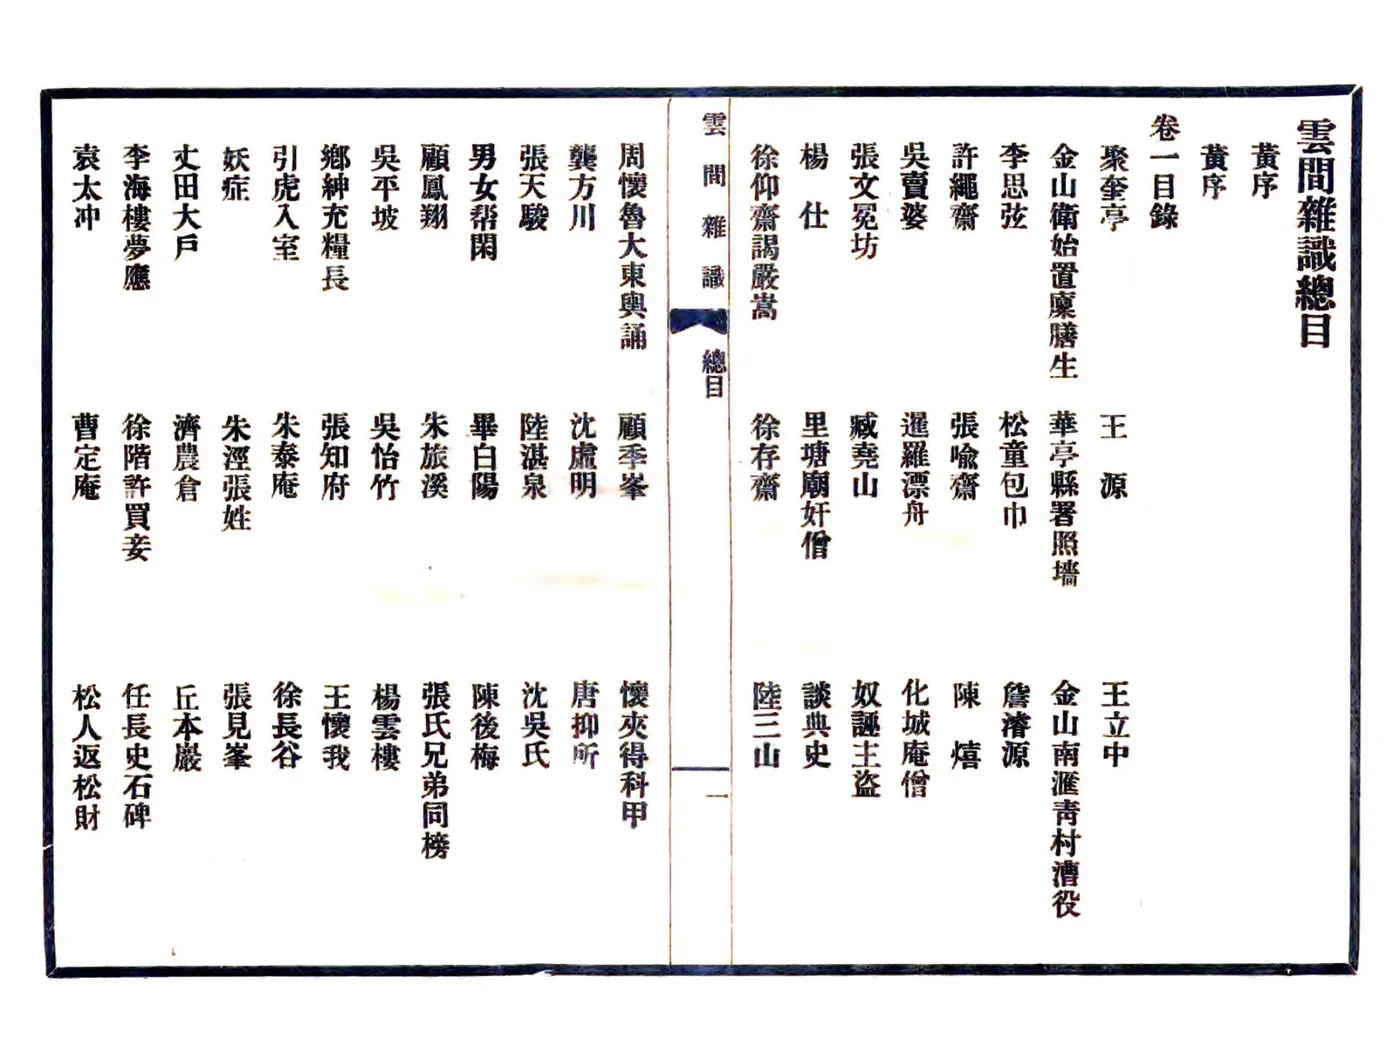 雲間雜識總目
黃序
黃序
卷一目錄
聚奎亭　王　源　王立中
金山衛始置廩膳生　華亭縣署照墻　金山南滙青村漕役
李思弦　松童包巾　詹濬源
許繩齋　張喻齋　陳　熺
吳賣婆　暹羅漂舟　化城庵僧
張文冕坊　臧堯山　奴誣主盜
楊　仕　里塘廟奸僧　談典史
徐仰齋謁嚴嵩　徐存齋　陸三山
雲間雜識　總目　一
周懷魯大東輿誦　顧季峯　懷夾得科甲
龔方川　沈虛明　唐抑所
張天駿　陸湛泉　沈吳氏
男女幇閑　畢白陽　陳後梅
顧鳳翔　朱旅溪　張氏兄弟同榜
吳平坡　吳怡竹　楊雲樓
鄉紳充糧長　張知府　王懷我
引虎入室　朱泰庵　徐長谷
妖症　朱涇張姓　張見峯
丈田大戶　濟農倉　丘本巖
李海樓夢應　徐階許買妾　任長史石碑
袁太冲　曹定庵　松人返松財